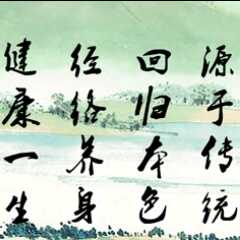 源于传统
回归本色
经络养身
健康一生